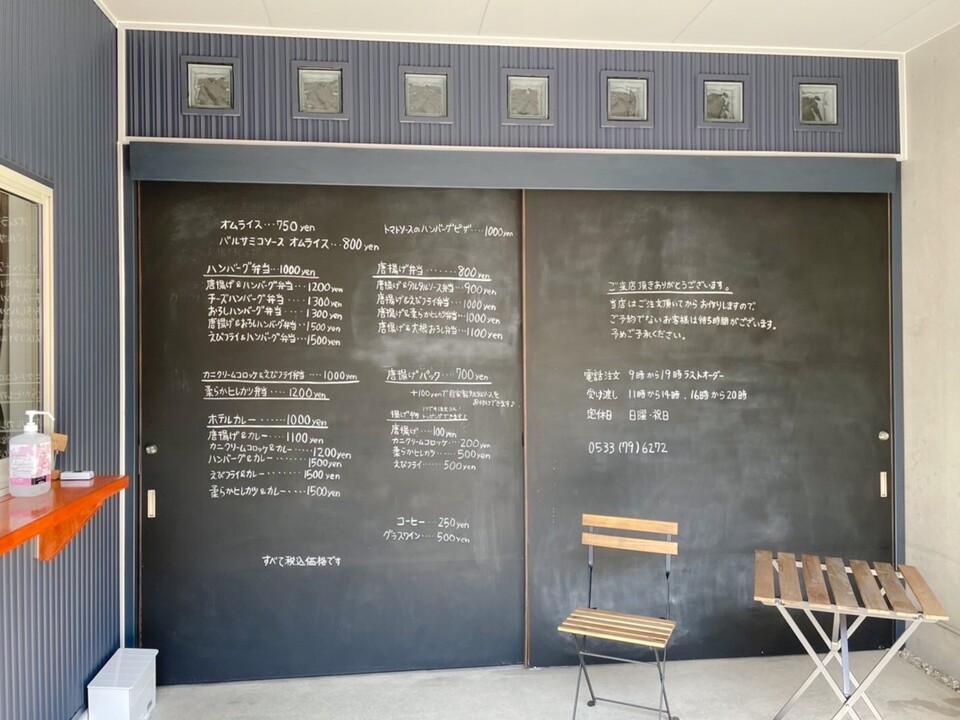 オムライス・・・750yen
バルサミコソース オムライス・・・800yen
ハンバーグ弁当・・・1000yen
唐揚げ&ハンバーグ弁当・・・1200yen
チーズハンバーグ弁当・・・1300yen
おろしハンバーグ弁当・・・1300yen
唐揚げ&おろしハンバーグ弁当・・・1500yen
えびフライ&ハンバーグ弁当・・・1500yen
カニクリームコロッケ&えびフライ弁当・・・1000yen
柔らかヒレカツ弁当・・・1200yen
ホテルカレー・・・・・1000yen
唐揚げ&カレー・・・・1100yen
カニクリームコロッケ&カレー・・・・1200yen
ハンバーグ&カレー・・・・・1500yen
えびフライ&カレー・・・・・1500yen
柔らかヒレカツ&カレー・・・・・1500yen
すべて税込価格です
トマトソースのハンバーグピザ・・・1000yen
唐揚げ弁当・・・・・・・800yen
唐揚げ&タルタルソース弁当・・・900yen
唐揚げ&えびフライ弁当・・・1000yen
唐揚げ&柔らかヒレカツ弁当・・・1000yen
唐揚げ&大根おろし弁当・・・1100yen
唐揚げパック・・・700yen
+100yenで自家製タルタルソースを
お付けできます♪
揚げ物
トッピングできます!
唐揚げ・・・100yen
カニクリームコロッケ・・・200yen
柔らかヒレカツ・・・・500yen
えびフライ・・・・500yen
コーヒー・・・250yen
グラスワイン・・・・500yen
ご来店頂きありがとうございます。
当店はご注文頂いてからお作りしますので、
ご予約でないお客様は待ち時間がございます。
予めご了承ください。
電話注文 9時から19時ラストオーダー
受け渡し 11時から14時、16時から20時
定休日 日曜・祝日
0533(79)6272